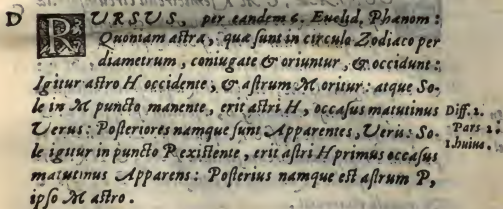 D
RURSUS, per eandem 5. Euclid. Phænom:
Quoniam astra, quæ sunt in circulo Zodiaco per
diametrum, coniugate & oriuntur, & occidunt:
Igitur astro H occidente, & astrum M oritur: atque So-
le in M puncto manente, erit astri H, occasus matutinus Diff. 2.
Verus: Posteriores namque sunt Apparentes, Veris: So- Pars 2.
le igitur in puncto P existente, erit astri H primus occasus 1. huius.
matutinus Apparens: Posterius namque est astrum P,
ipso M astro.